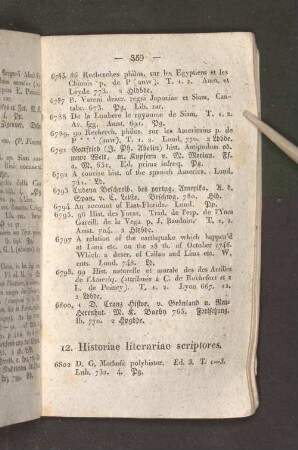 — 359 —
6785. 86 Recherches philos. sur les Egyptiens et les
Chinois p. de P (auw). T. 1. 2. Amst. et
Leyde 773. 2 Hldbde.
6787 B. Vareni descr. regni Japoniae et Siam, Can-
tabr. 673. Pg. Ldsbar.
6788 De la Loubere le royaume de Siam, T. 1. 2.
Av. fgg. Amst. 691. Pg.
6789. 90 Recherch. philos. sur les Americains p. de
P * * * (auw). T. 1. 2. Lond. 770. 2 Ldbde.
6791 Gottfried (J. Ph. Abelin) hist. Antipodum od.
newe Welt, m. Kupfern v. M. Merian. Ff.
a. M. 631. Ed. prima infreq. Pg.
6792 A concise hist. of the spanish America. Lond.
741. Lb.
6793 Cudena Beschreib. des portug. Amerika. A. d.
Span. v. C. Leiste. Brschwg. 780. Lb.
6794 An account of East-Florida. Lond. Pp.
6795. 96 Hist. des Yncas. Trad. de l'esp. de l'Ynn
Garcill. de la Vega p. J. Baudoin. T. 1. 2.
Amst. 704. 2 Hlbfbde.
6797 A relation of the earthquake which happen'd
at Lima etc. on the 28 th. of October 1746.
Which: a descr. of Callao and Lima etc. W.
cuts. Lond. 748. Lb.
6798. 99 Hist. naturelle et morale des Antilles
de l'Ameriq. (attribuée à C. de Rochefort et à
L. de Poincy). T. 1. 2. Lyon 667. 12.
2 Ldbde.
6800, 1 D. Cranz Histor. v. Grönland u. Neu
Herrnhut. M. K. Barby 765, Fortsetzung.
ib. 770. 2 Hpgbde.
12. Historiae literariae scriptores.
6802 D. G. Morhofii polyhistor. Ed. 3. T. 1—3.
Lub. 732. 4. Pg.